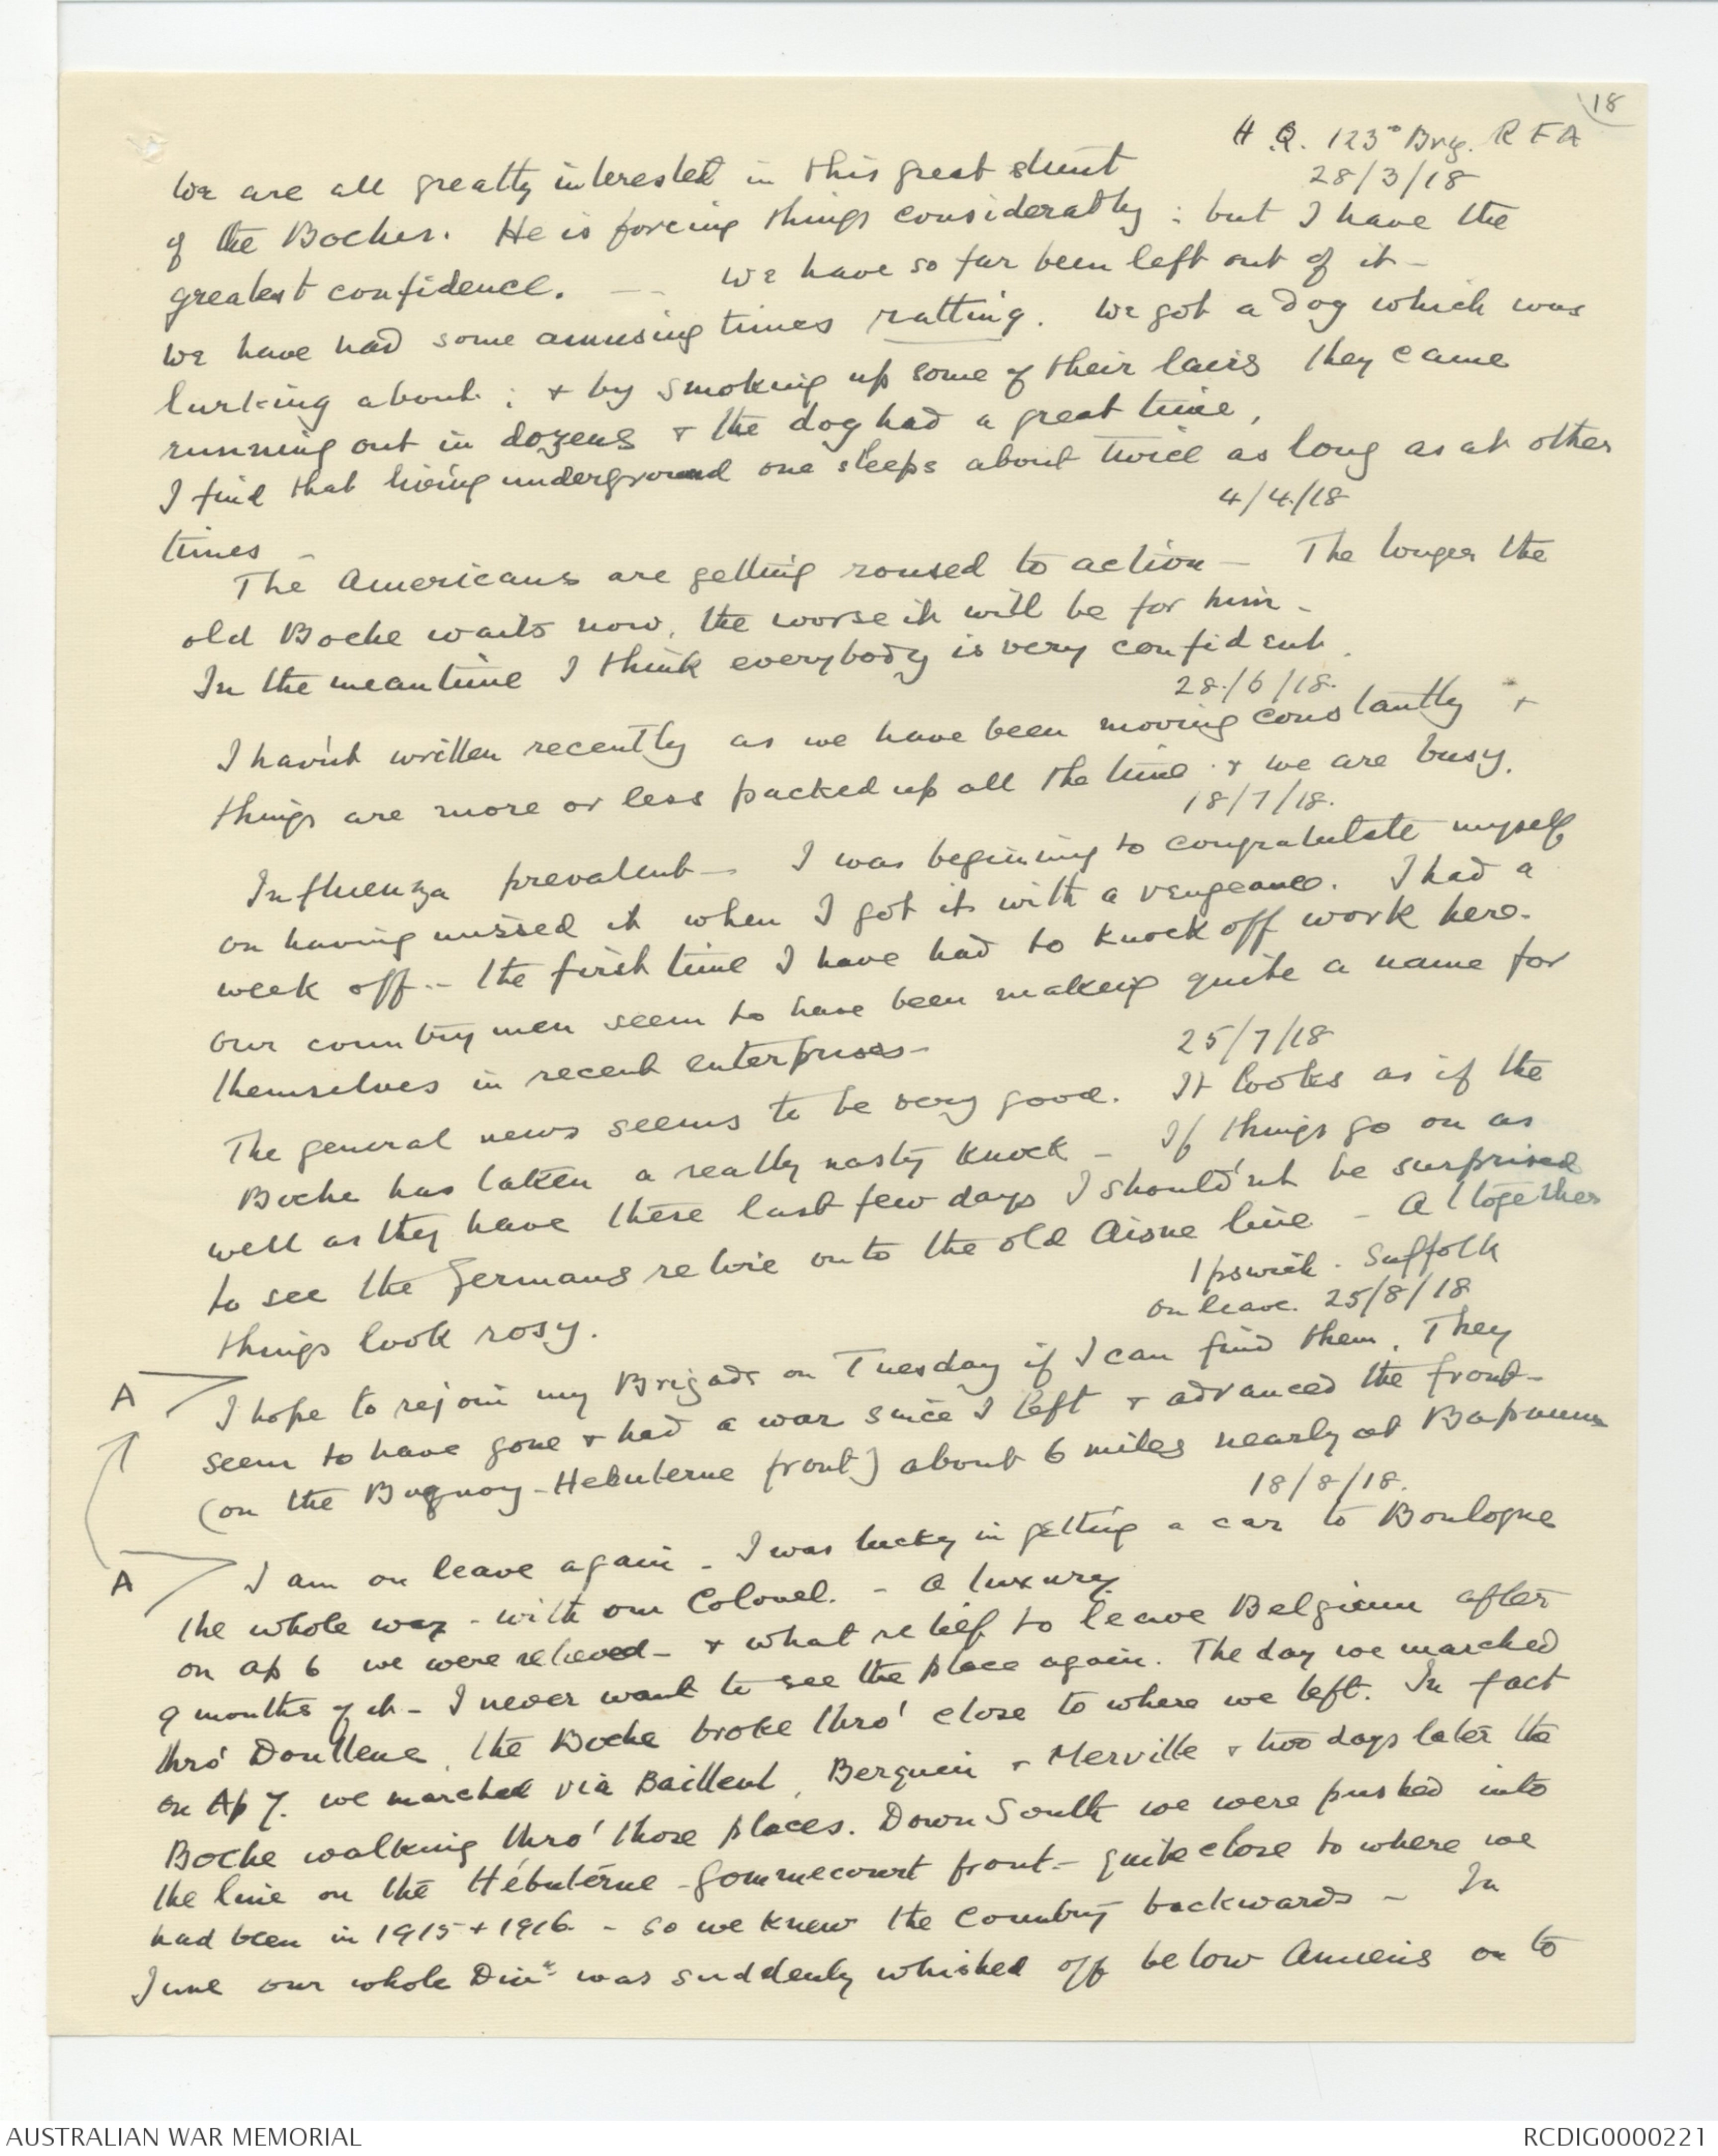 18
H.Q. 123rd Brig. R F A
28/3/18
We are all greatly interested in this great stunt
of the Boches. He is forcing things considerably : but I have the
greatest confidence. — — We have so far been left out of it —
We have had some amusing times ratting. We got a dog which was
lurking about : + by smoking up some of their lairs they came
running out in dozens + the dog had a great time.
I find that living underground one sleeps about twice as long as at other
4/4/18
times —
The Americans are getting roused to action — The longer the
old Boche waits now, the worse it will be for him —
In the meantime I think everybody is very confident.
28/6/18.
I havn't written recently as we have been moving constantly +
things are more or less packed up all the time + we are busy.
18/7/18.
Influenza prevalent — I was beginning to congratulate myself
on having missed it when I got it with a vengeance. I had a
week off — the first time I have had to knock off work here.
Our countrymen seem to have been making quite a name for
themselves in recent enterprises —
25/7/18
The general news seems to be very good. It looks as if the
Boche has taken a really nasty knock — If things go on as
well as they have these last few days I should'nt be surprised
to see the Germans retire on to the old Aisne line — Altogether
things look rosy.
Ipswich. Suffolk
on leave. 25/8/18
A I hope to rejoin my Brigade on Tuesday if I can find them. They
seem to have gone + had a war since I left + advanced the front —
(on the Buquoy - Hebuterne front) about 6 miles nearly at Bapaume
18/8/18.
A I am on leave again — I was lucky in getting a car to Boulogne
the whole way - with our Colonel. — a luxury.
On Ap 6 we were relieved — + what relief to leave Belgium after
9 months of it — I never want to see the place again. The day we marched
thro' Doullene, the Boche broke thro' close to where we left. In fact
on Ap 7. we marched via Bailleul, Berquin + Merville + two days later the
Boche walking thro' those places. Down South we were pushed into
the line on the Hébutérne - Gommecourt front — quite close to where we
had been in 1915 + 1916 — so we knew the country backwards — In
June our whole Divn was suddenly whisked off below Amiens on to
AUSTRALIAN WAR MEMORIAL
RCDIG0000221